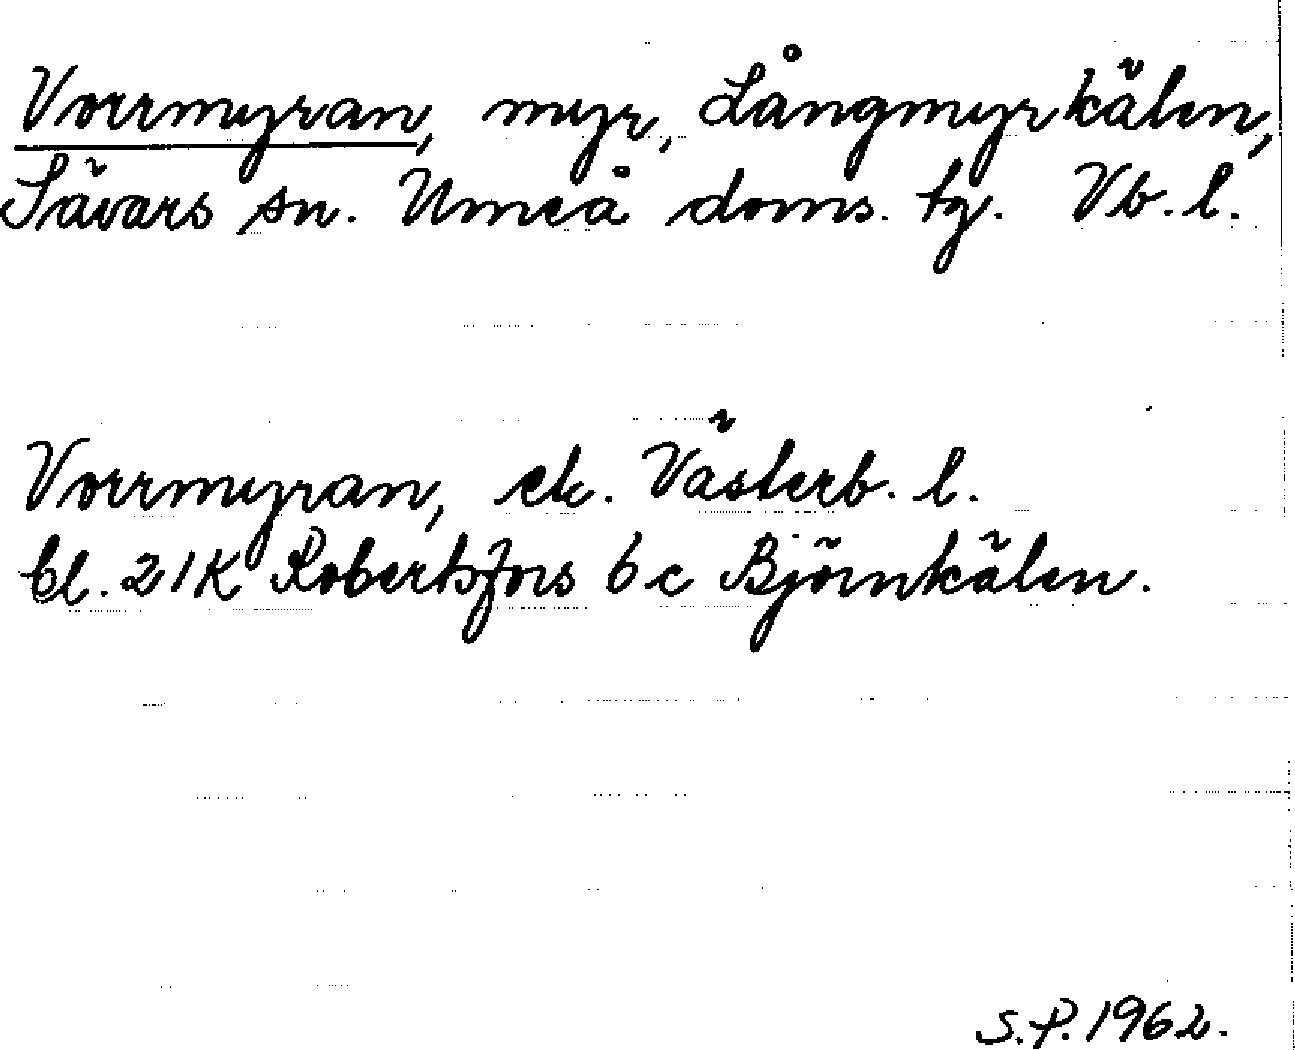 Vorrmyran, myr, Långmyrkälen,
Sävars sn. Umeå doms. tg. Vb. l.
Vorrmyran, ek. Västerb. l.
bl. 21K Robertsfors 6 c Björnkälen.
S.P. 1962.